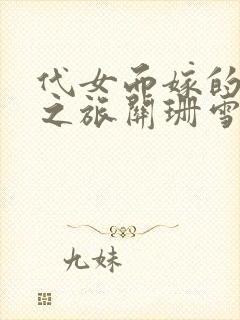 代女而嫁的
之旅關珊雪
九妹